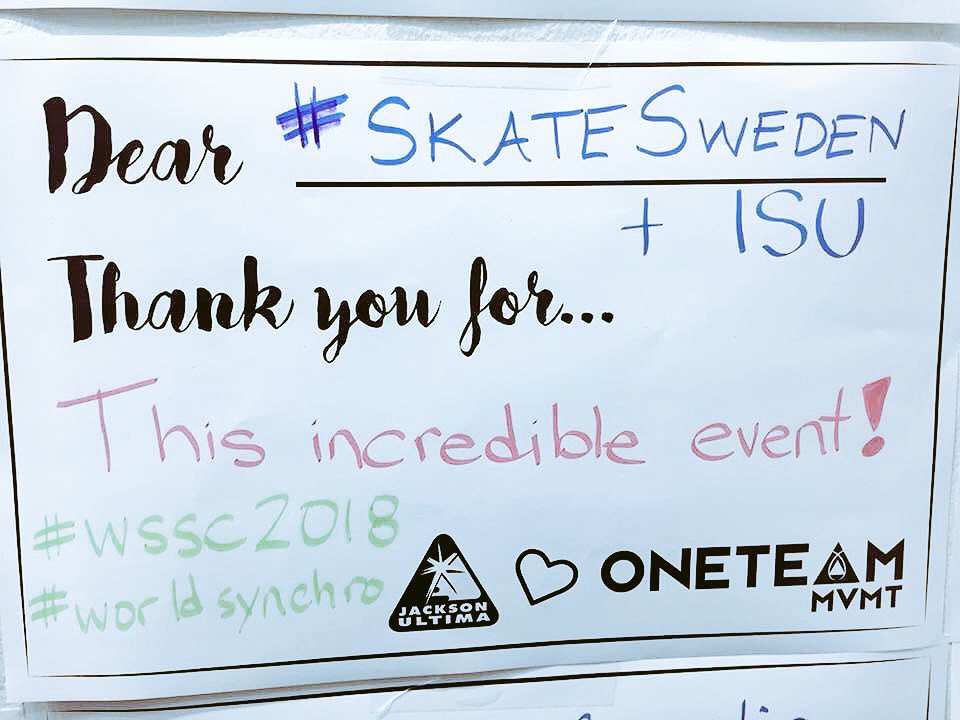 Dear #SKATESWEDEN
+ ISU
Thank you for...
This incredible event!
#wssc2018
#worldsynchro
JACKSON
ULTIMA
ONETEAM
MVMT